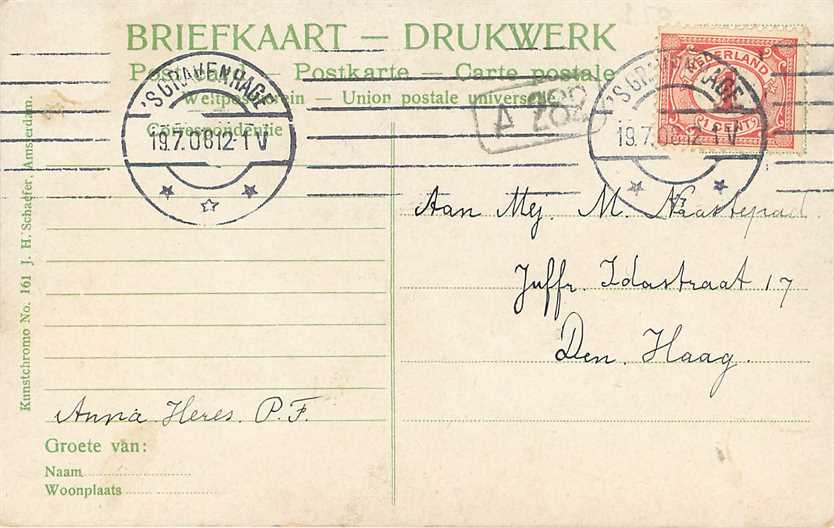 BRIEFKAART — DRUKWERK
Post card — Postkarte — Carte postale
Weltpostverein — Union postale universelle.
Correspondentie
'S GRAVENHAGE
19.7.06 12-1 V
A 282
'S GRAVENHAGE
19.7.06 12-1 V
NEDERLAND
1
1 CENT
Aan Mej. M. Naastepad
Juffr. Idastraat 17
Den Haag.
Anna Heres. P.F.
Groete van:
Naam
Woonplaats
Kunstchromo No. 161 J. H. Schaefer, Amsterdam.